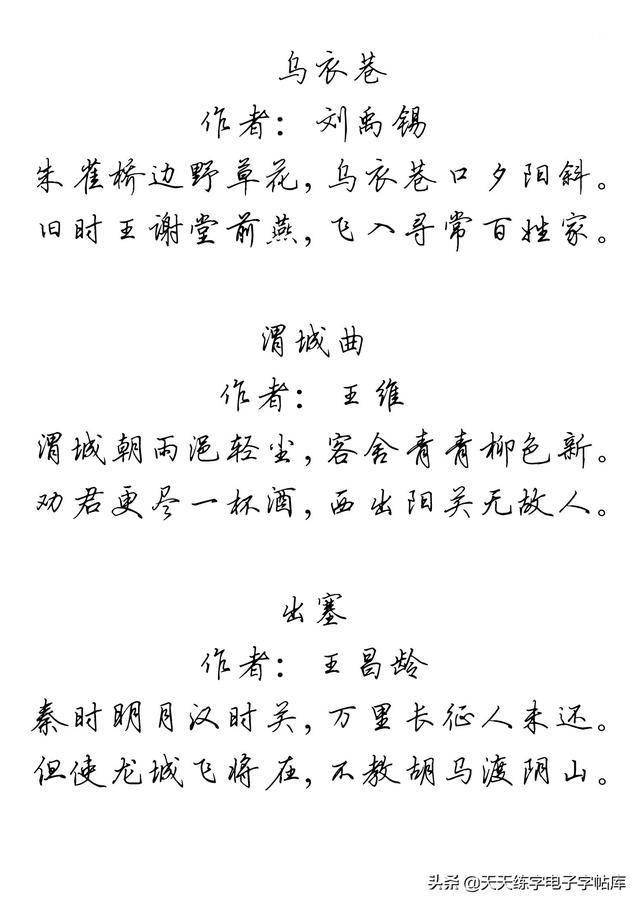 乌衣巷
作者：刘禹锡
朱雀桥边野草花，乌衣巷口夕阳斜。
旧时王谢堂前燕，飞入寻常百姓家。
渭城曲
作者：王维
渭城朝雨浥轻尘，客舍青青柳色新。
劝君更尽一杯酒，西出阳关无故人。
出塞
作者：王昌龄
秦时明月汉时关，万里长征人未还。
但使龙城飞将在，不教胡马渡阴山。
头条 @天天练字电子字帖库